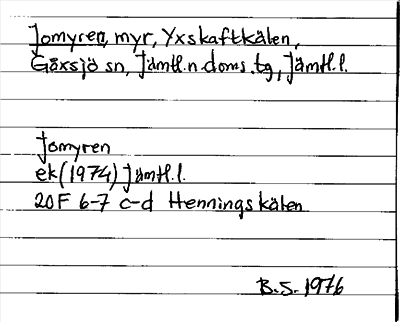 Jomyren, myr, Yxskaftkälen,
Gåxsjö sn, Jämtl.n.doms.tg, Jämtl.l.
Jomyren
ek (1974) Jämtl.l.
20F 6-7 c-d Henningskälen
B.S. 1976